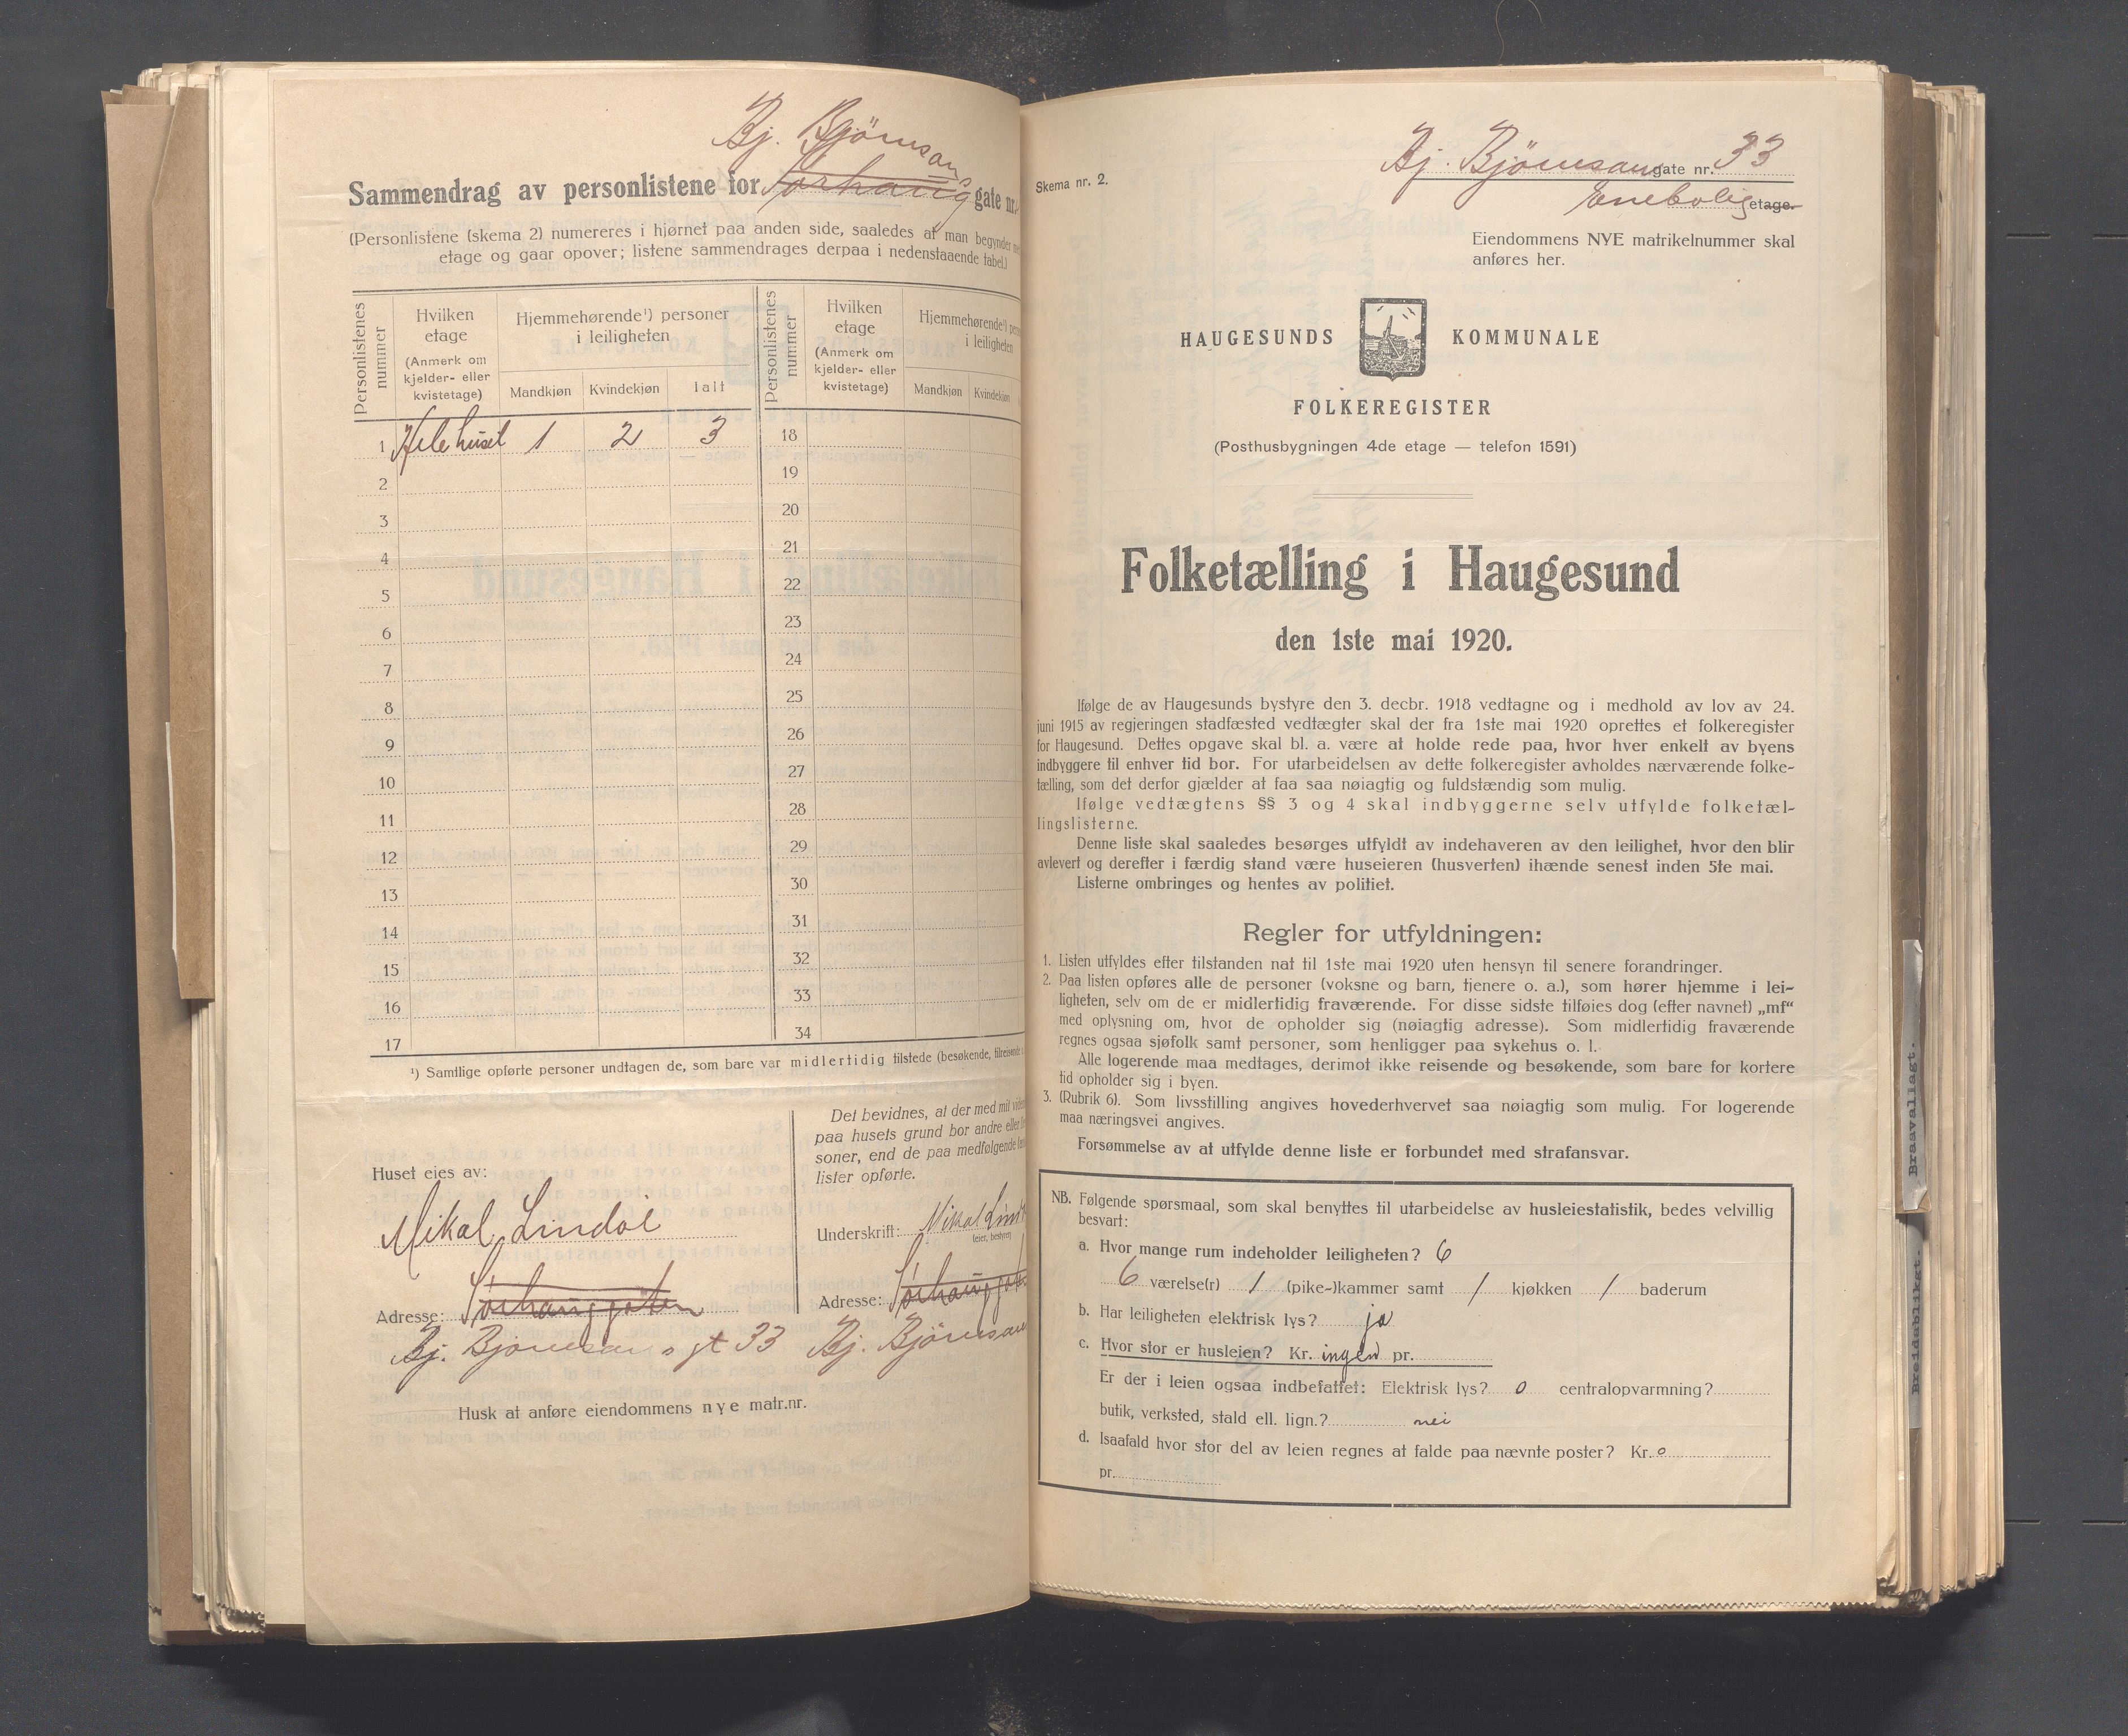 Bj. Bjørnsons
Sammendrag av personlistene for Sørhaug gate nr.
(Personlistene (skema 2) numereres i hjørnet paa anden side, saaledes at man begynder
etage og gaar opover; listene sammendrages derpaa i nedenstaaende tabel.)
Personlistenes nummer
Hvilken etage
(Anmerk om kjelder- eller kvistetage)
Hjemmehørende¹) personer i leiligheten
Mandkjøn Kvindekjøn Ialt
Personlistenes nummer
Hvilken etage
(Anmerk om kjelder- eller kvistetage)
Hjemmehørende¹)
i leiligheten
Mandkjøn Kvindekjøn
1 Hele huset 1 2 3 18
2 19
3 20
4 21
5 22
6 23
7 24
8 25
9 26
10 27
11 28
12 29
13 30
14 31
15 32
16 33
17 34
¹) Samtlige opførte personer undtagen de, som bare var midlertidig tilstede (besøkende, tilreisende
Huset eies av:
Mikal Lindøe
Adresse: Sørhauggaten
Bj. Bjørnsons gt 33
Det bevidnes, at der med mit
paa husets grund bor andre eller
soner, end de paa medfølgende
lister opførte.
Underskrift: Mikal
(eier, bestyrer)
Adresse:
Bj. Bjørnson
Husk at anføre eiendommens nye matr.nr.
Skema nr. 2.
Bj. Bjørnsons gate nr. 33
Enebolig etage.
Eiendommens NYE matrikelnummer skal
anføres her.
HAUGESUNDS KOMMUNALE
FOLKEREGISTER
(Posthusbygningen 4de etage — telefon 1591)
Folketælling i Haugesund
den 1ste mai 1920.
Ifølge de av Haugesunds bystyre den 3. decbr. 1918 vedtagne og i medhold av lov av 24.
juni 1915 av regjeringen stadfæsted vedtægter skal der fra 1ste mai 1920 oprettes et folkeregister
for Haugesund. Dettes opgave skal bl. a. være at holde rede paa, hvor hver enkelt av byens
indbyggere til enhver tid bor. For utarbeidelsen av dette folkeregister avholdes nærværende folke-
tælling, som det derfor gjælder at faa saa nøiagtig og fuldstændig som mulig.
Ifølge vedtægtens §§ 3 og 4 skal indbyggerne selv utfylde folketæl-
lingslisterne.
Denne liste skal saaledes besørges utfyldt av indehaveren av den leilighet, hvor den blir
avlevert og derefter i færdig stand være huseieren (husverten) ihænde senest inden 5te mai.
Listerne ombringes og hentes av politiet.
Regler for utfyldningen:
1. Listen utfyldes efter tilstanden nat til 1ste mai 1920 uten hensyn til senere forandringer.
2. Paa listen opføres alle de personer (voksne og barn, tjenere o. a.), som hører hjemme i lei-
ligheten, selv om de er midlertidig fraværende. For disse sidste tilføies dog (efter navnet) „mf“
med oplysning om, hvor de opholder sig (nøiagtig adresse). Som midlertidig fraværende
regnes ogsaa sjøfolk samt personer, som henligger paa sykehus o. l.
Alle logerende maa medtages, derimot ikke reisende og besøkende, som bare for kortere
tid opholder sig i byen.
3. (Rubrik 6). Som livsstilling angives hovederhvervet saa nøiagtig som mulig. For logerende
maa næringsvei angives.
Forsømmelse av at utfylde denne liste er forbundet med strafansvar.
NB. Følgende spørsmaal, som skal benyttes til utarbeidelse av husleiestatistik, bedes velvillig
besvart:
a. Hvor mange rum indeholder leiligheten? 6
6 værelse(r) 1 (pike-)kammer samt 1 kjøkken 1 baderum
b. Har leiligheten elektrisk lys? ja
c. Hvor stor er husleien? Kr. ingen pr.
Er der i leien ogsaa indbefattet: Elektrisk lys? 0 centralopvarmning?
butik, verksted, stald ell. lign.? nei
d. Isaafald hvor stor del av leien regnes at falde paa nævnte poster? Kr. 0
pr.
Braavallagt.
Breidablikgt.